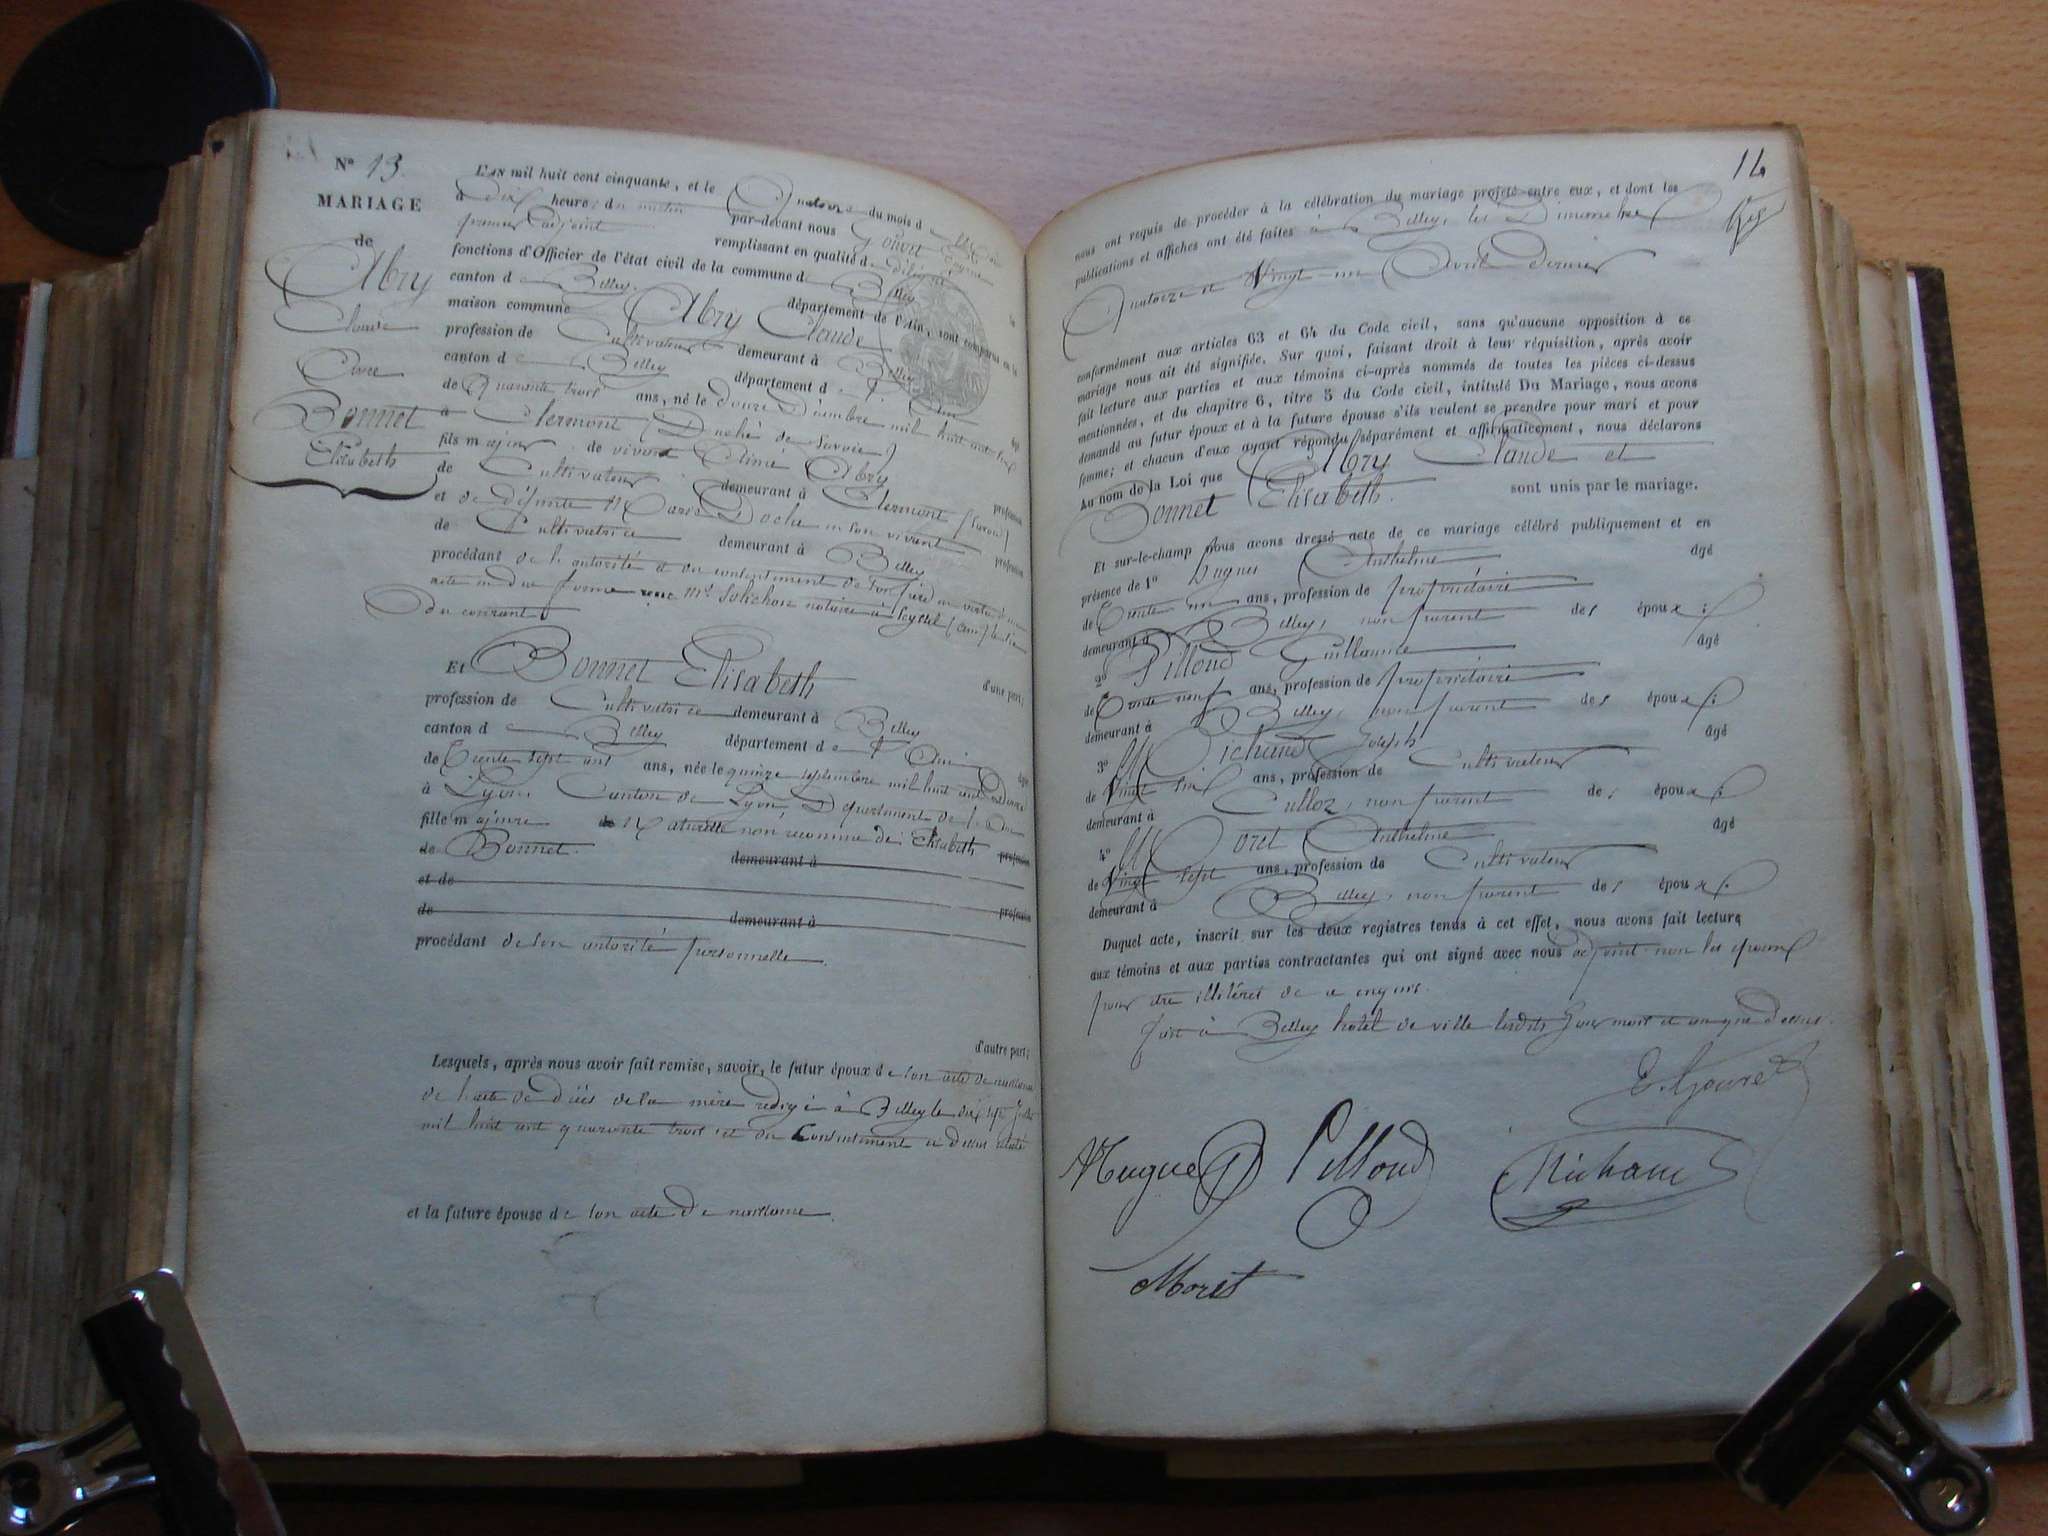 N° 13.
MARIAGE
de
Abry
Claude
Avec
Bonnet
Elisabeth
L'AN mil huit cent cinquante, et le Quatorze du mois d
à dix heures du matin par-devant nous Gouvret Eugène
premier adjoint remplissant en qualité de délégué
fonctions d'Officier de l'état civil de la commune de Belley
canton de Belley. département de l'Ain, sont comparus en la
maison commune Abry Claude
profession de Cultivateur demeurant à Belley
canton de Belley département de l'Ain âgé
de Quarante trois ans, né le douze Décembre mil huit cent six
à Clermont (Duché de Savoie)
fils majeur de vivant Aimé Abry profession
de Cultivateur demeurant à Clermont (Savoie)
et de défunte Marie Doche en son vivant profession
de Cultivatrice demeurant à Belley
procédant de l'autorité et du consentement de son père en vertu d'un
acte en due forme reçu Me notaire à Seyssel (Ain) le
du courant
d'une part;
Et Bonnet Elisabeth
profession de Cultivatrice demeurant à Belley
canton de Belley département de l'Ain âgé
de Trente sept ans ans, née le quinze septembre mil huit cent Douze
à Lyon, Canton de Lyon, Département de
fille majeure de Naturelle non reconnue de Elisabeth profession
de Bonnet. demeurant à
et de profession
de demeurant à
procédant de son autorité personnelle.
d'autre part;
Lesquels, après nous avoir fait remise, savoir, le futur époux de son acte de naissance
de l'acte de décès de sa mère redigé à Belley le dix sept
mil huit cent quarante trois et du Consentement ci dessus relaté
et la future épouse de son acte de naissance.
14
nous ont requis de procéder à la célébration du mariage projeté entre eux, et dont les
publications et affiches ont été faites à Belley, les Dimanches
Quatorze et Vingt un Avril dernier
conformément aux articles 63 et 64 du Code civil, sans qu'aucune opposition à ce
mariage nous ait été signifiée. Sur quoi, faisant droit à leur réquisition, après avoir
fait lecture aux parties et aux témoins ci-après nommés de toutes les pièces ci-dessus
mentionnées, et du chapitre 6, titre 5 du Code civil, intitulé Du Mariage, nous avons
demandé au futur époux et à la future épouse s'ils veulent se prendre pour mari et pour
femme; et chacun d'eux ayant répondu séparément et affirmativement, nous déclarons
Au nom de la Loi que Abry Claude et
Bonnet Elisabeth. sont unis par le mariage.
Et sur-le-champ nous avons dressé acte de ce mariage célébré publiquement et en
présence de 1° Hugues Anthelme âgé
de Trente un ans, profession de propriétaire
demeurant à Belley, non parent des époux;
2° Pilloud Guillaume âgé
de Trente neuf ans, profession de propriétaire
demeurant à Belley, non parent des époux;
3° Michaud Joseph âgé
de Vingt six ans, profession de Cultivateur
demeurant à Culloz, non parent des époux;
4° Moret Anthelme âgé
de Vingt sept ans, profession de Cultivateur
demeurant à Belley, non parent des époux.
Duquel acte, inscrit sur les deux registres tenus à cet effet, nous avons fait lecture
aux témoins et aux parties contractantes qui ont signé avec nous adjoint non les époux
pour être illitérés de ce enquis.
fait à Belley hotel de ville lesdits jour mois et an que dessus.
E. Gouvret
Hugues Pilloud Michaud
Moret